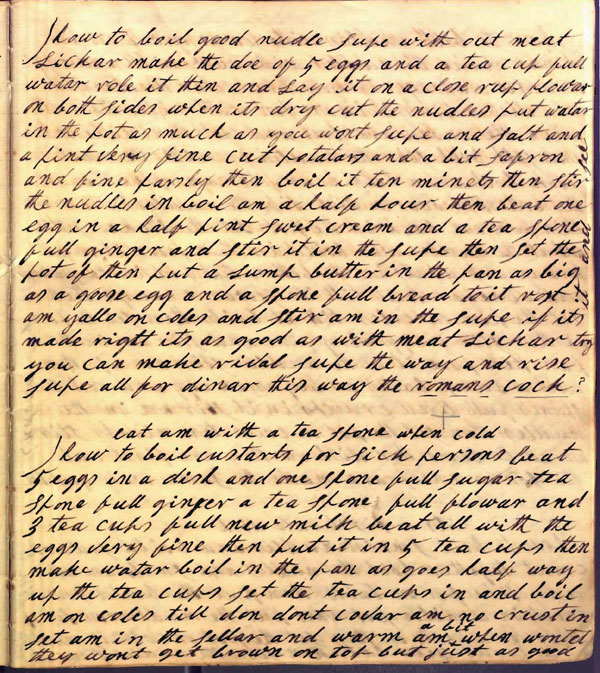 how to boil good nudle supe with out meat
Lickar make the doe of 5 eggs and a tea cup full
watar role it thin and Lay it on a close rup flowar
on both sides when its dry cut the nudles put watar
in the pot as much as you wont supe and salt and
a pint very fine cut potatars and a bit safron
and fine parsly then boil it ten minets then stir
the nudles in boil am a half hour then beat one
egg in a half pint swet cream and a tea spone
full ginger and stir it in the supe then set the
pot of then put a Lump butter in the pan as big
as a goose egg and a spone full bread to it rost
am yallo on coles and stir am in the supe if its
made right its as good as with meat Lickar try
it and see
you can make rival supe the way and rise
supe all for dinar this way the romans cock ?
eat am with a tea spone when cold
how to boil custarts for sick persons beat
5 eggs in a dish and one spone full sugar tea
spone full ginger a tea spone full flowar and
3 tea cups full new milk beat all with the
eggs very fine then put it in 5 tea cups then
make watar boil in the pan as goes half way
up the tea cups set the tea cups in and boil
am on coles till don dont covar am no crust in
set am in the sellar and warm am a bit when wonted
they wont get brown on top but just as good